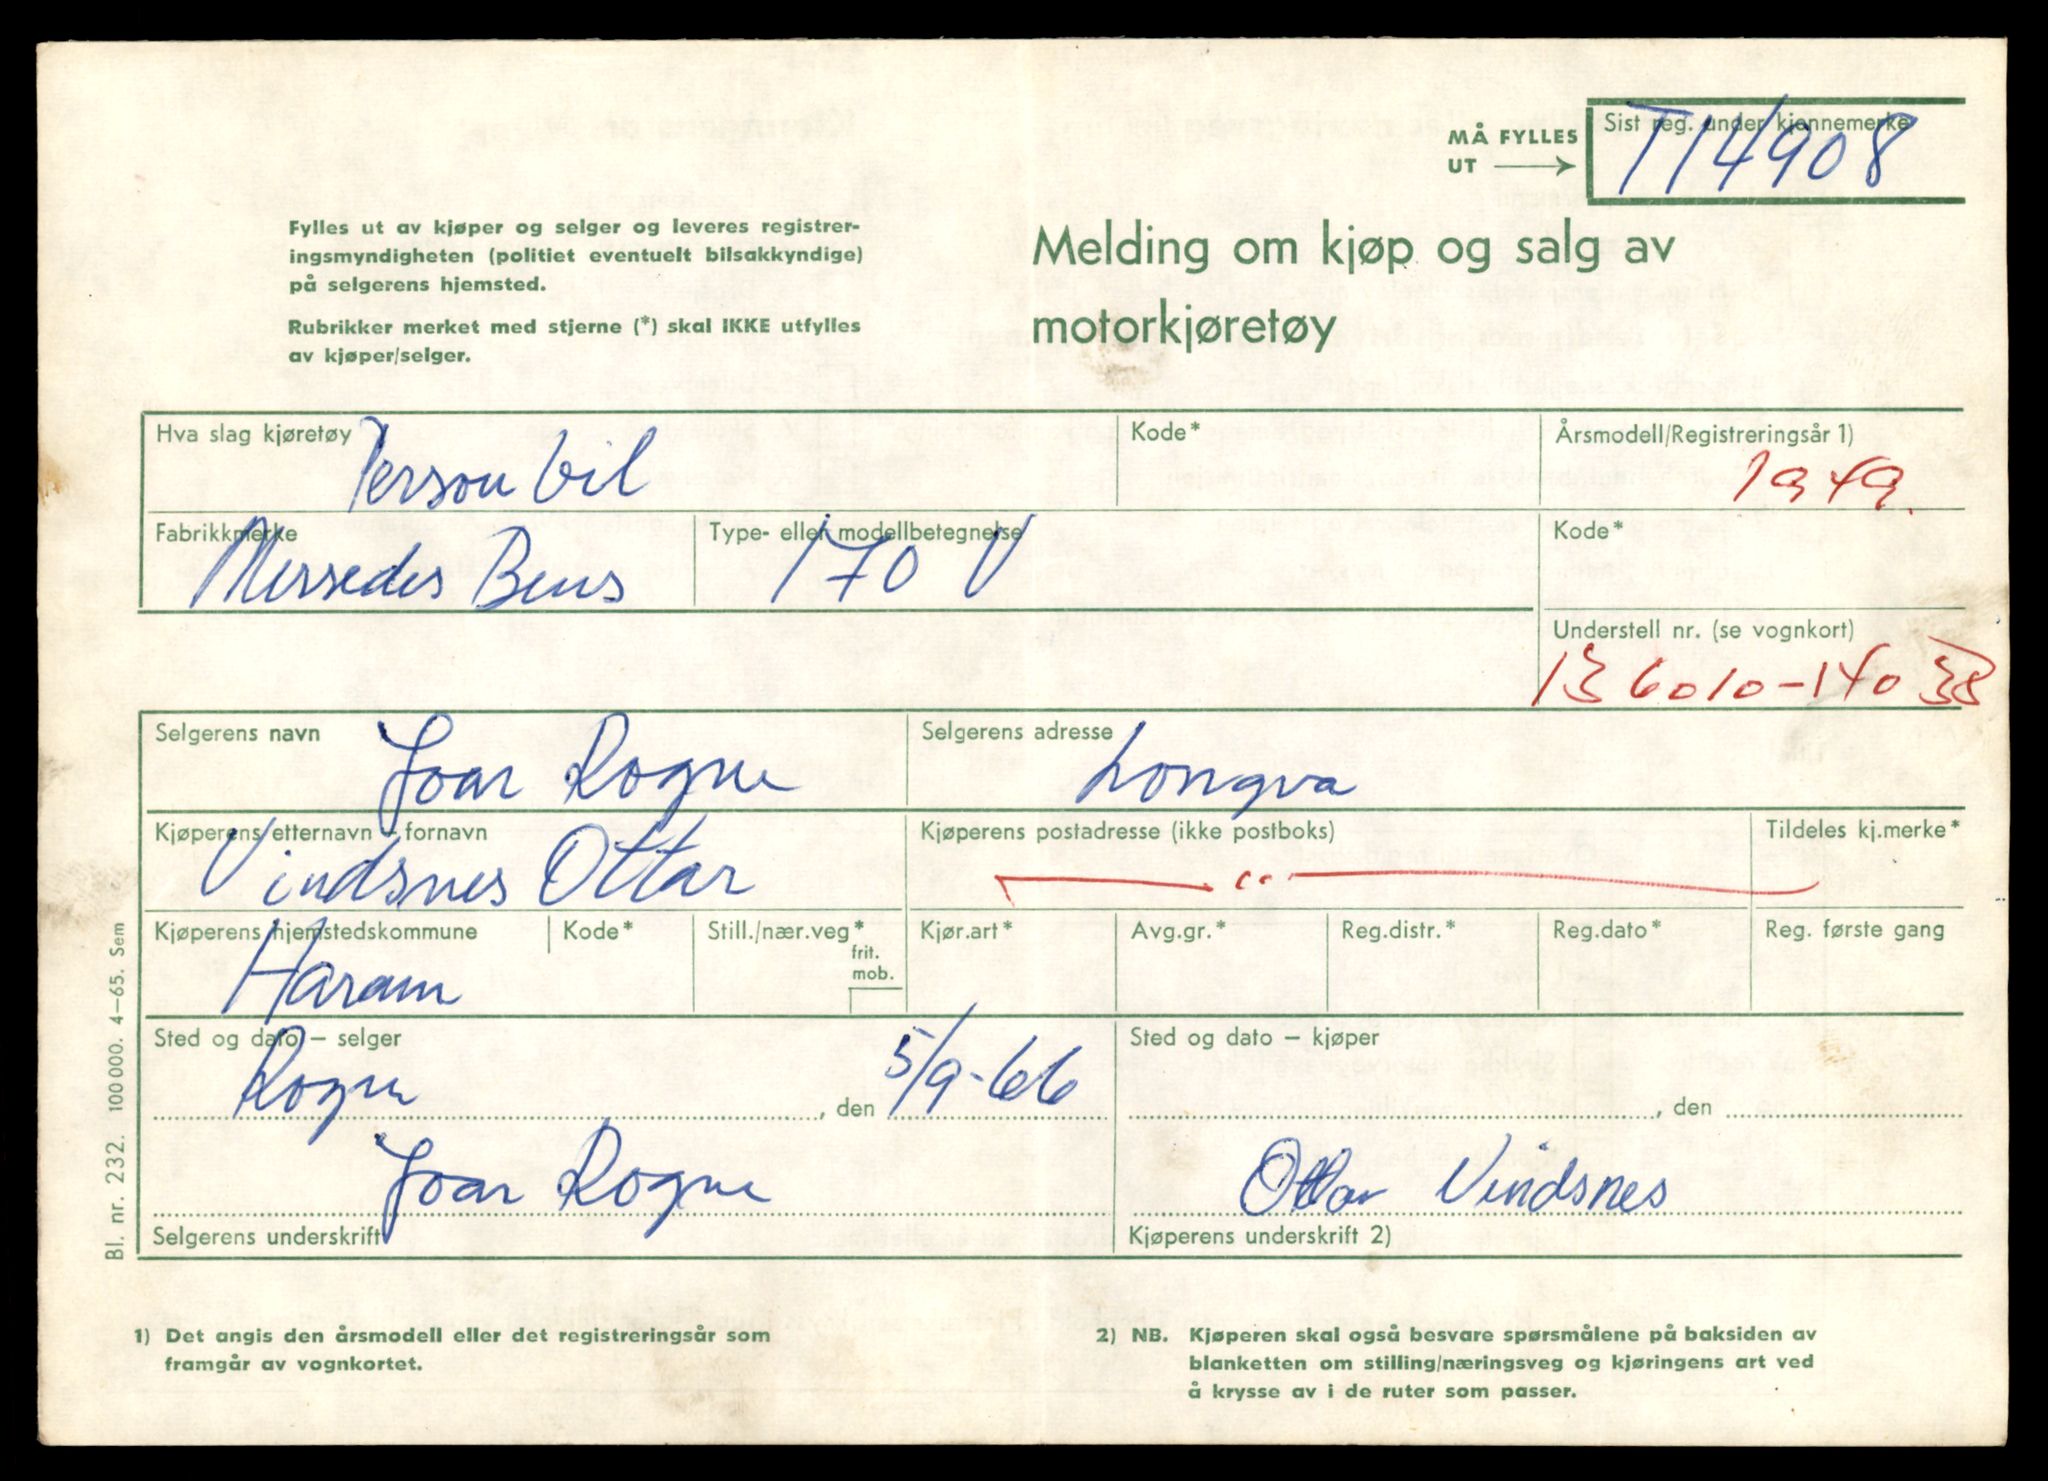 MÅ FYLLES
UT
Sist reg. under kjennemerke
T14908
Fylles ut av kjøper og selger og leveres registrer-
ingsmyndigheten (politiet eventuelt bilsakkyndige)
på selgerens hjemsted.
Rubrikker merket med stjerne (*) skal IKKE utfylles
av kjøper/selger.
Melding om kjøp og salg av
motorkjøretøy
Hva slag kjøretøy
Personbil
Kode*
Årsmodell/Registreringsår 1)
1949.
Fabrikkmerke
Merssedes Bens
Type- eller modellbetegnelse
170 V
Kode*
Understell nr. (se vognkort)
136010-14038
Selgerens navn
Joar Rogne
Selgerens adresse
Longva
Kjøperens etternavn – fornavn
Vindsnes Ottar
Kjøperens postadresse (ikke postboks)
"
Tildeles kj.merke*
Kjøperens hjemstedskommune
Haram
Kode*
Still./nær.veg*
frit.
mob.
Kjør.art*
Avg.gr.*
Reg.distr.*
Reg.dato*
Reg. første gang
Sted og dato – selger
Rogne, den 5/9-66
Sted og dato – kjøper
, den
Joar Rogne
Selgerens underskrift
Ottar Vindsnes
Kjøperens underskrift 2)
Bl. nr. 232. 100 000. 4–65. Sem
1) Det angis den årsmodell eller det registreringsår som
framgår av vognkortet.
2) NB. Kjøperen skal også besvare spørsmålene på baksiden av
blanketten om stilling/næringsveg og kjøringens art ved
å krysse av i de ruter som passer.